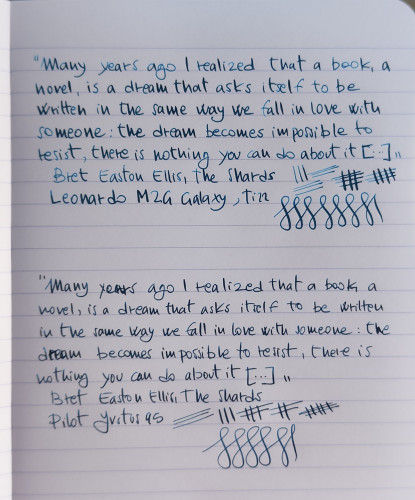 "Many years ago I realized that a book, a
novel, is a dream that asks itself to be
written in the same way we fall in love with
someone: the dream becomes impossible to
resist, there is nothing you can do about it [...]"
Bret Easton Ellis, The Shards
Leonardo MZG Galaxy,
"Many years ago I realized that a book, a
novel, is a dream that asks itself to be written
in the same way we fall in love with someone: the
dream becomes impossible to resist, there is
nothing you can do about it [...]"
Bret Easton Ellis, The Shards
Pilot 95